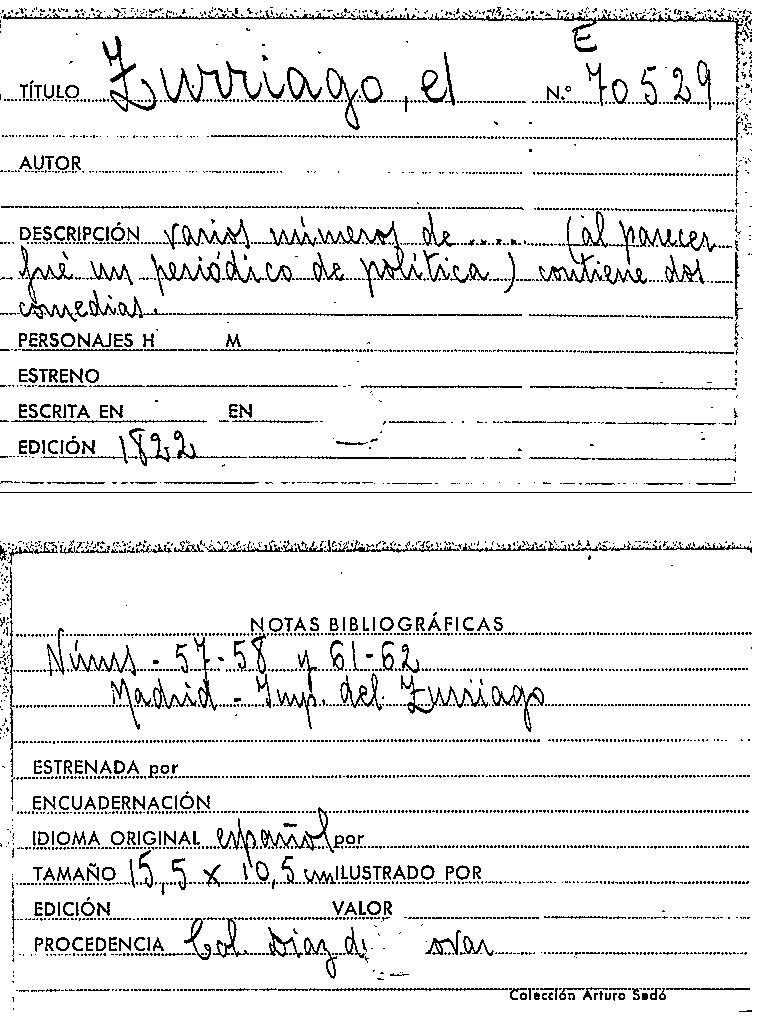 E
TÍTULO Zurriago, el N.º 70529
AUTOR
DESCRIPCIÓN varios números de ..... (al parecer
fué un periódico de política) contiene dos
comedias.
PERSONAJES H M
ESTRENO
ESCRITA EN EN
EDICIÓN 1822
NOTAS BIBLIOGRÁFICAS
Núms - 57-58 y 61-62
Madrid - Imp. del Zurriago
ESTRENADA por
ENCUADERNACIÓN
IDIOMA ORIGINAL español por
TAMAÑO 15,5 x 10,5 cm ILUSTRADO POR
EDICIÓN VALOR
PROCEDENCIA Col. Díaz de
Colección Arturo Sedó